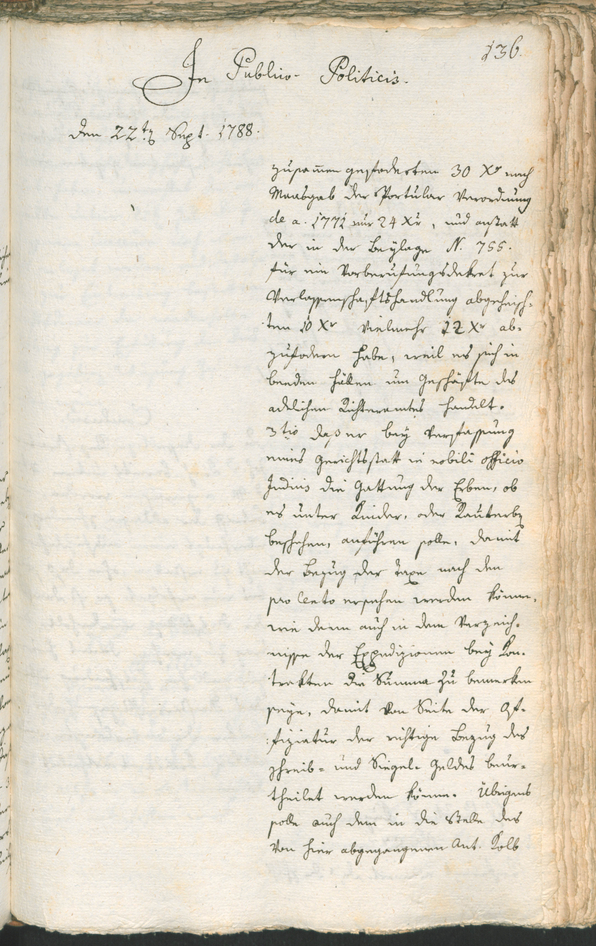 136.
In Publico-Politicis.
den 22t Sept. 1788.
zusam̄en gefoderten 30 Xr nach
Maasgab der Portular Verordnung
de a. 1771 nur 24 Xr, und anstatt
der in der Beylage N. 755.
für ein Vorberufungsdekret zur
Verlassenschaftshandlung abgeheisch-
ten 10 Xr vielmehr 12 Xr ab-
zufodern habe, weil es sich in
beeden Fällen um Geschäfte des
adelichen Richteramtes handelt.
3tio daß er bey Verfassung
eines Gerichtsstatt in nobili officio
Judicis die Gattung der Erben, ob
es unter Kinder, oder
beschehen, anführen solle, damit
der Bezug der Taxe nach den
pro Cento ersehen werden könne,
wie dann auch in dem Verzeich-
nisse der Expedizionen bey Kon-
trakten die Summa zu bemerken
seye, damit von Seite der Of-
fiziatur der richtige Bezug des
Schreib- und Siegel-Geldes beur-
theilet werden könne. Übrigens
solle auch dem in die Stelle des
von hier abgegangenen Ant. Kolb